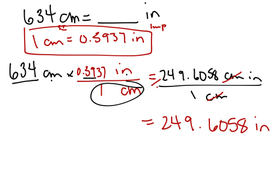 634 cm = ______ in
1 cm = 0.3937 in
imp
634 cm × 0.3937 in / 1 cm = 249.6058 cm in / 1 cm
= 249.6058 in